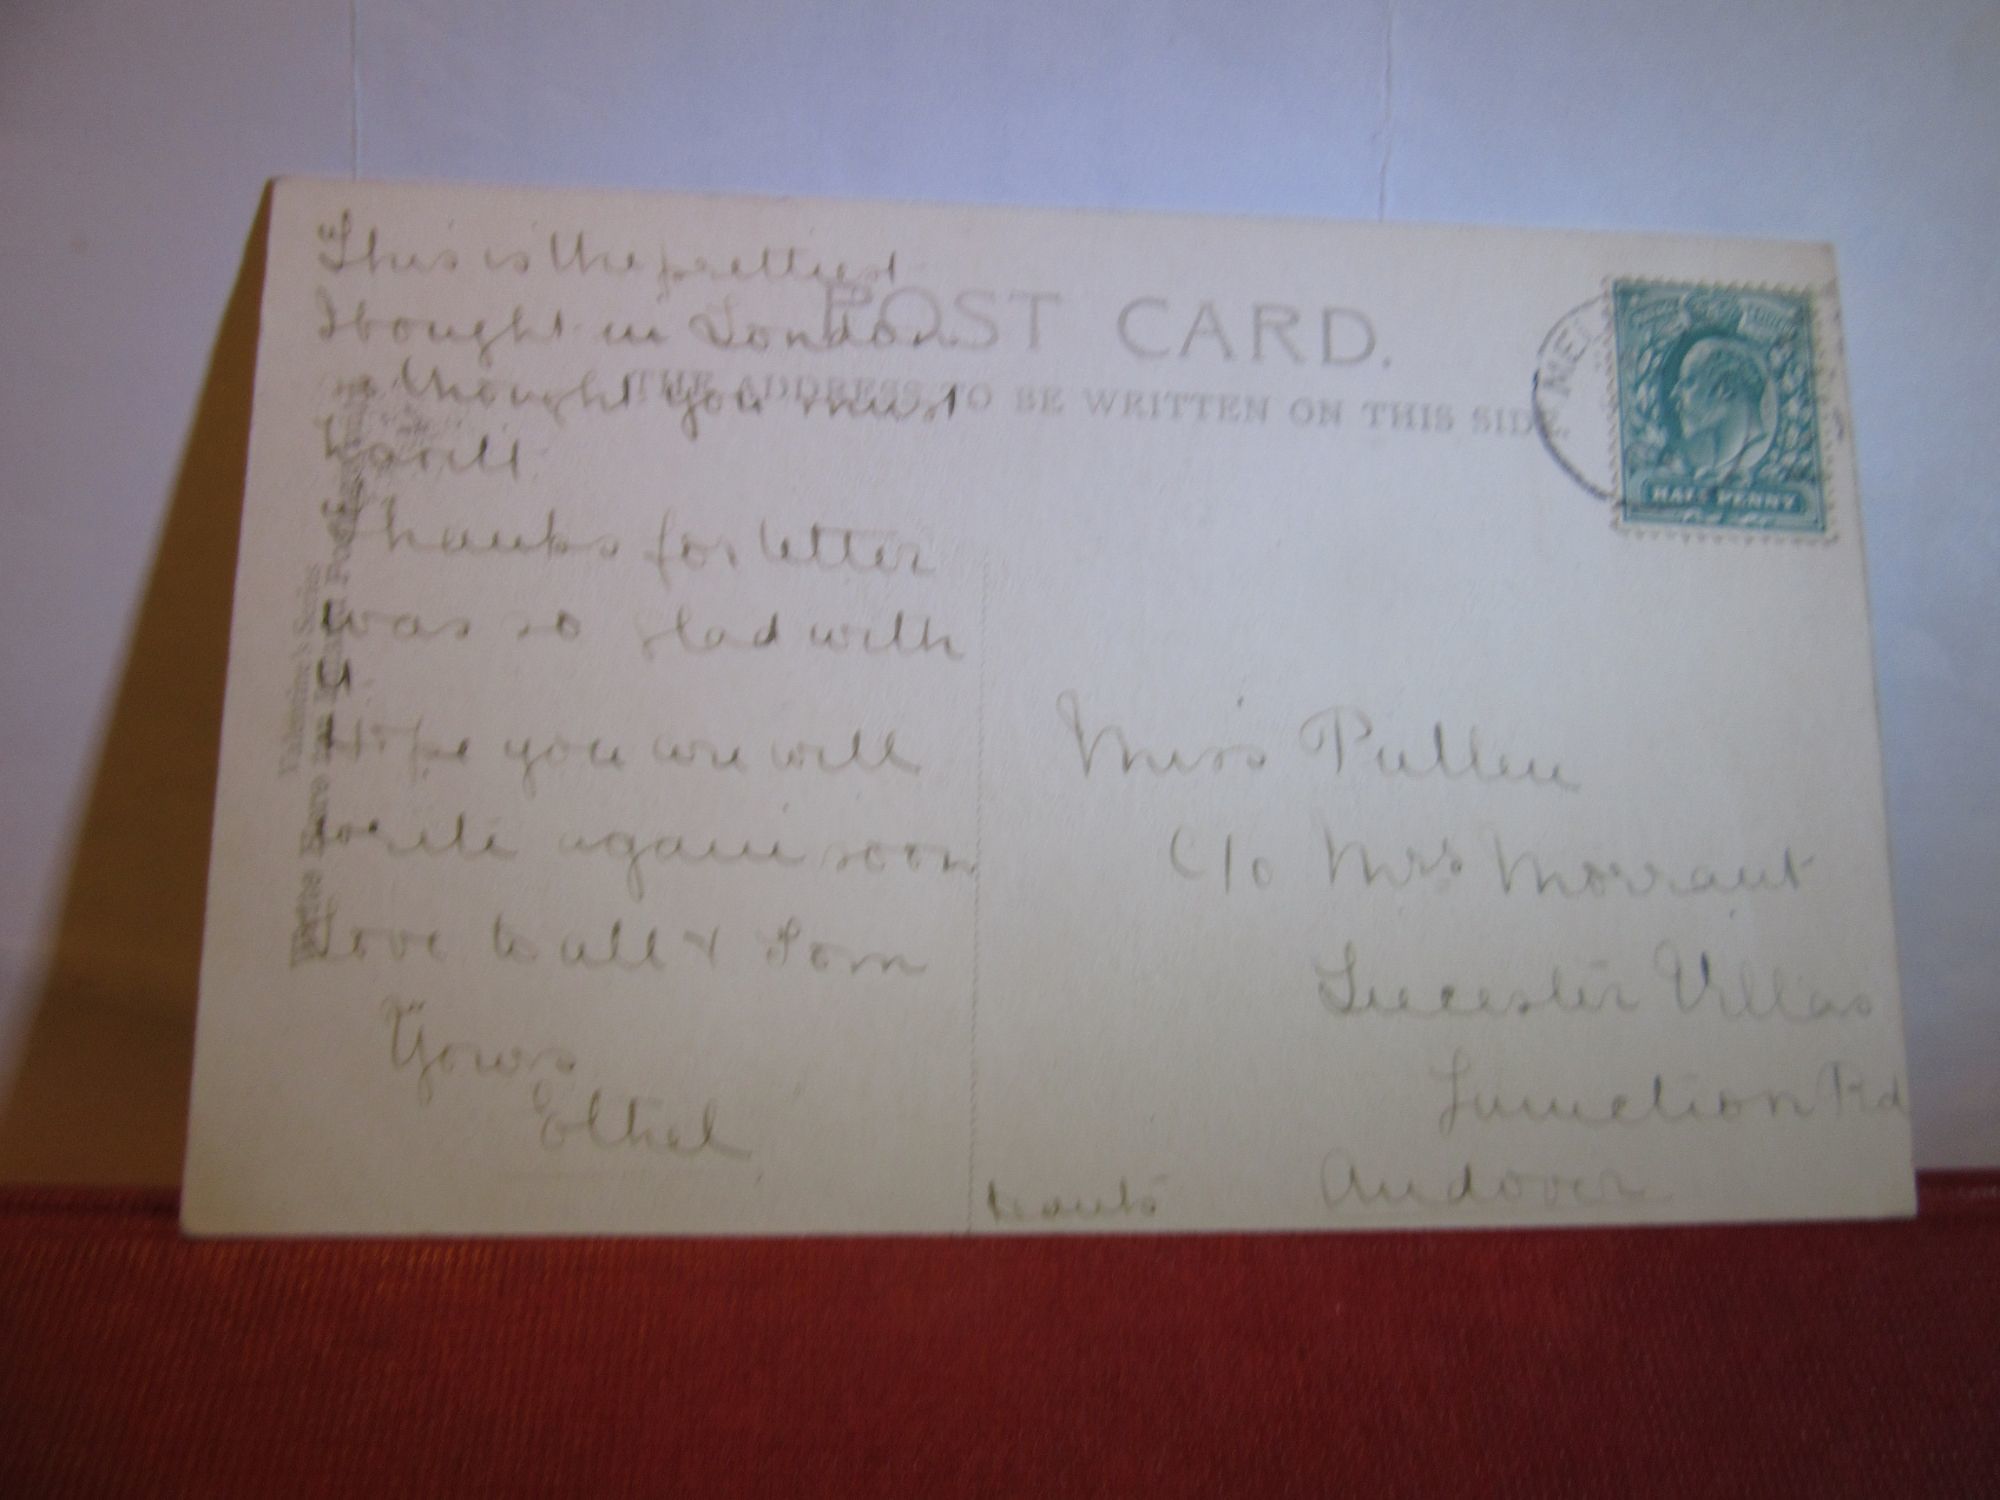 This is the prettiest
I bought in London
so thought you must
have it
Thanks for letter
was so glad with
it
Hope you will
write again soon
Love to all & Tom
Yours
Ethel
POST CARD.
THE ADDRESS TO BE WRITTEN ON THIS SIDE.
MEL
HALF PENNY
Miss Pullen
c/o Mrs Morrant
Leicester Villas
Junction Rd
Andover
Hants
Valentine's Series